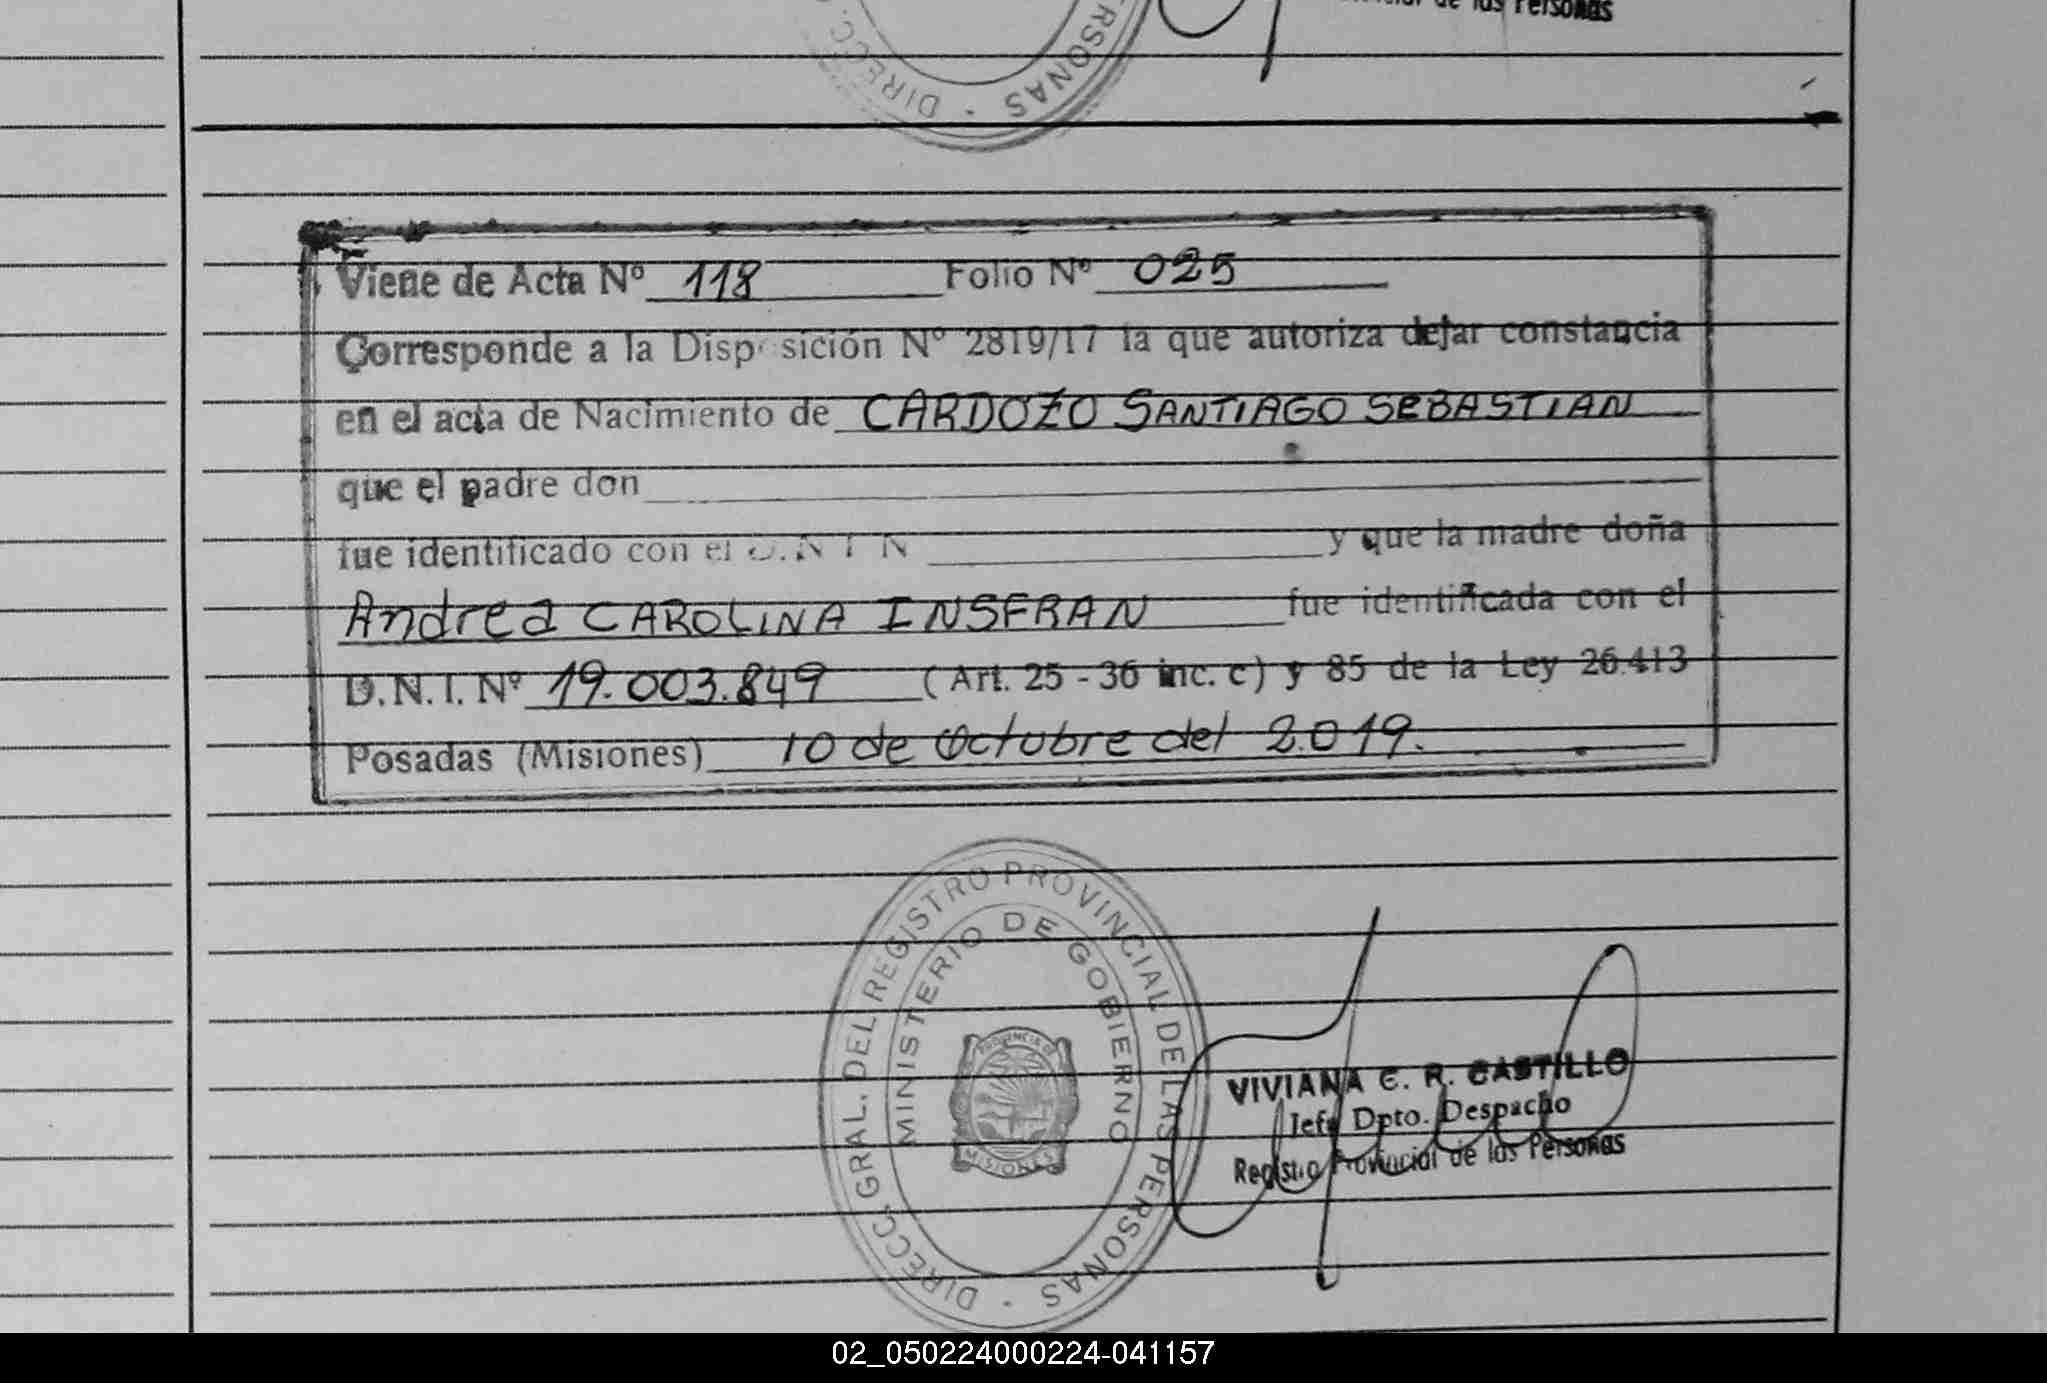 de las Personas
DIRECC. RSONAS
Viene de Acta Nº 118 Folio Nº 025
Corresponde a la Disposición Nº 2819/17 la que autoriza dejar constancia
en el acta de Nacimiento de CARDOZO SANTIAGO SEBASTIAN
que el padre don
fue identificado con el D.N I N y que la madre doña
Andrea CAROLINA INSFRAN fue identificada con el
D.N.I. Nº 19.003.849 (Art. 25 - 36 inc. c) y 85 de la Ley 26.413
Posadas (Misiones) 10 de Octubre del 2.019.
DIRECC. GRAL. DEL REGISTRO PROVINCIAL DE LAS PERSONAS
MINISTERIO DE GOBIERNO
PROVINCIA DE
MISIONES
VIVIANA C. R. CASTILLO
Jefe Dpto. Despacho
Registro Provincial de las Personas
02_050224000224-041157